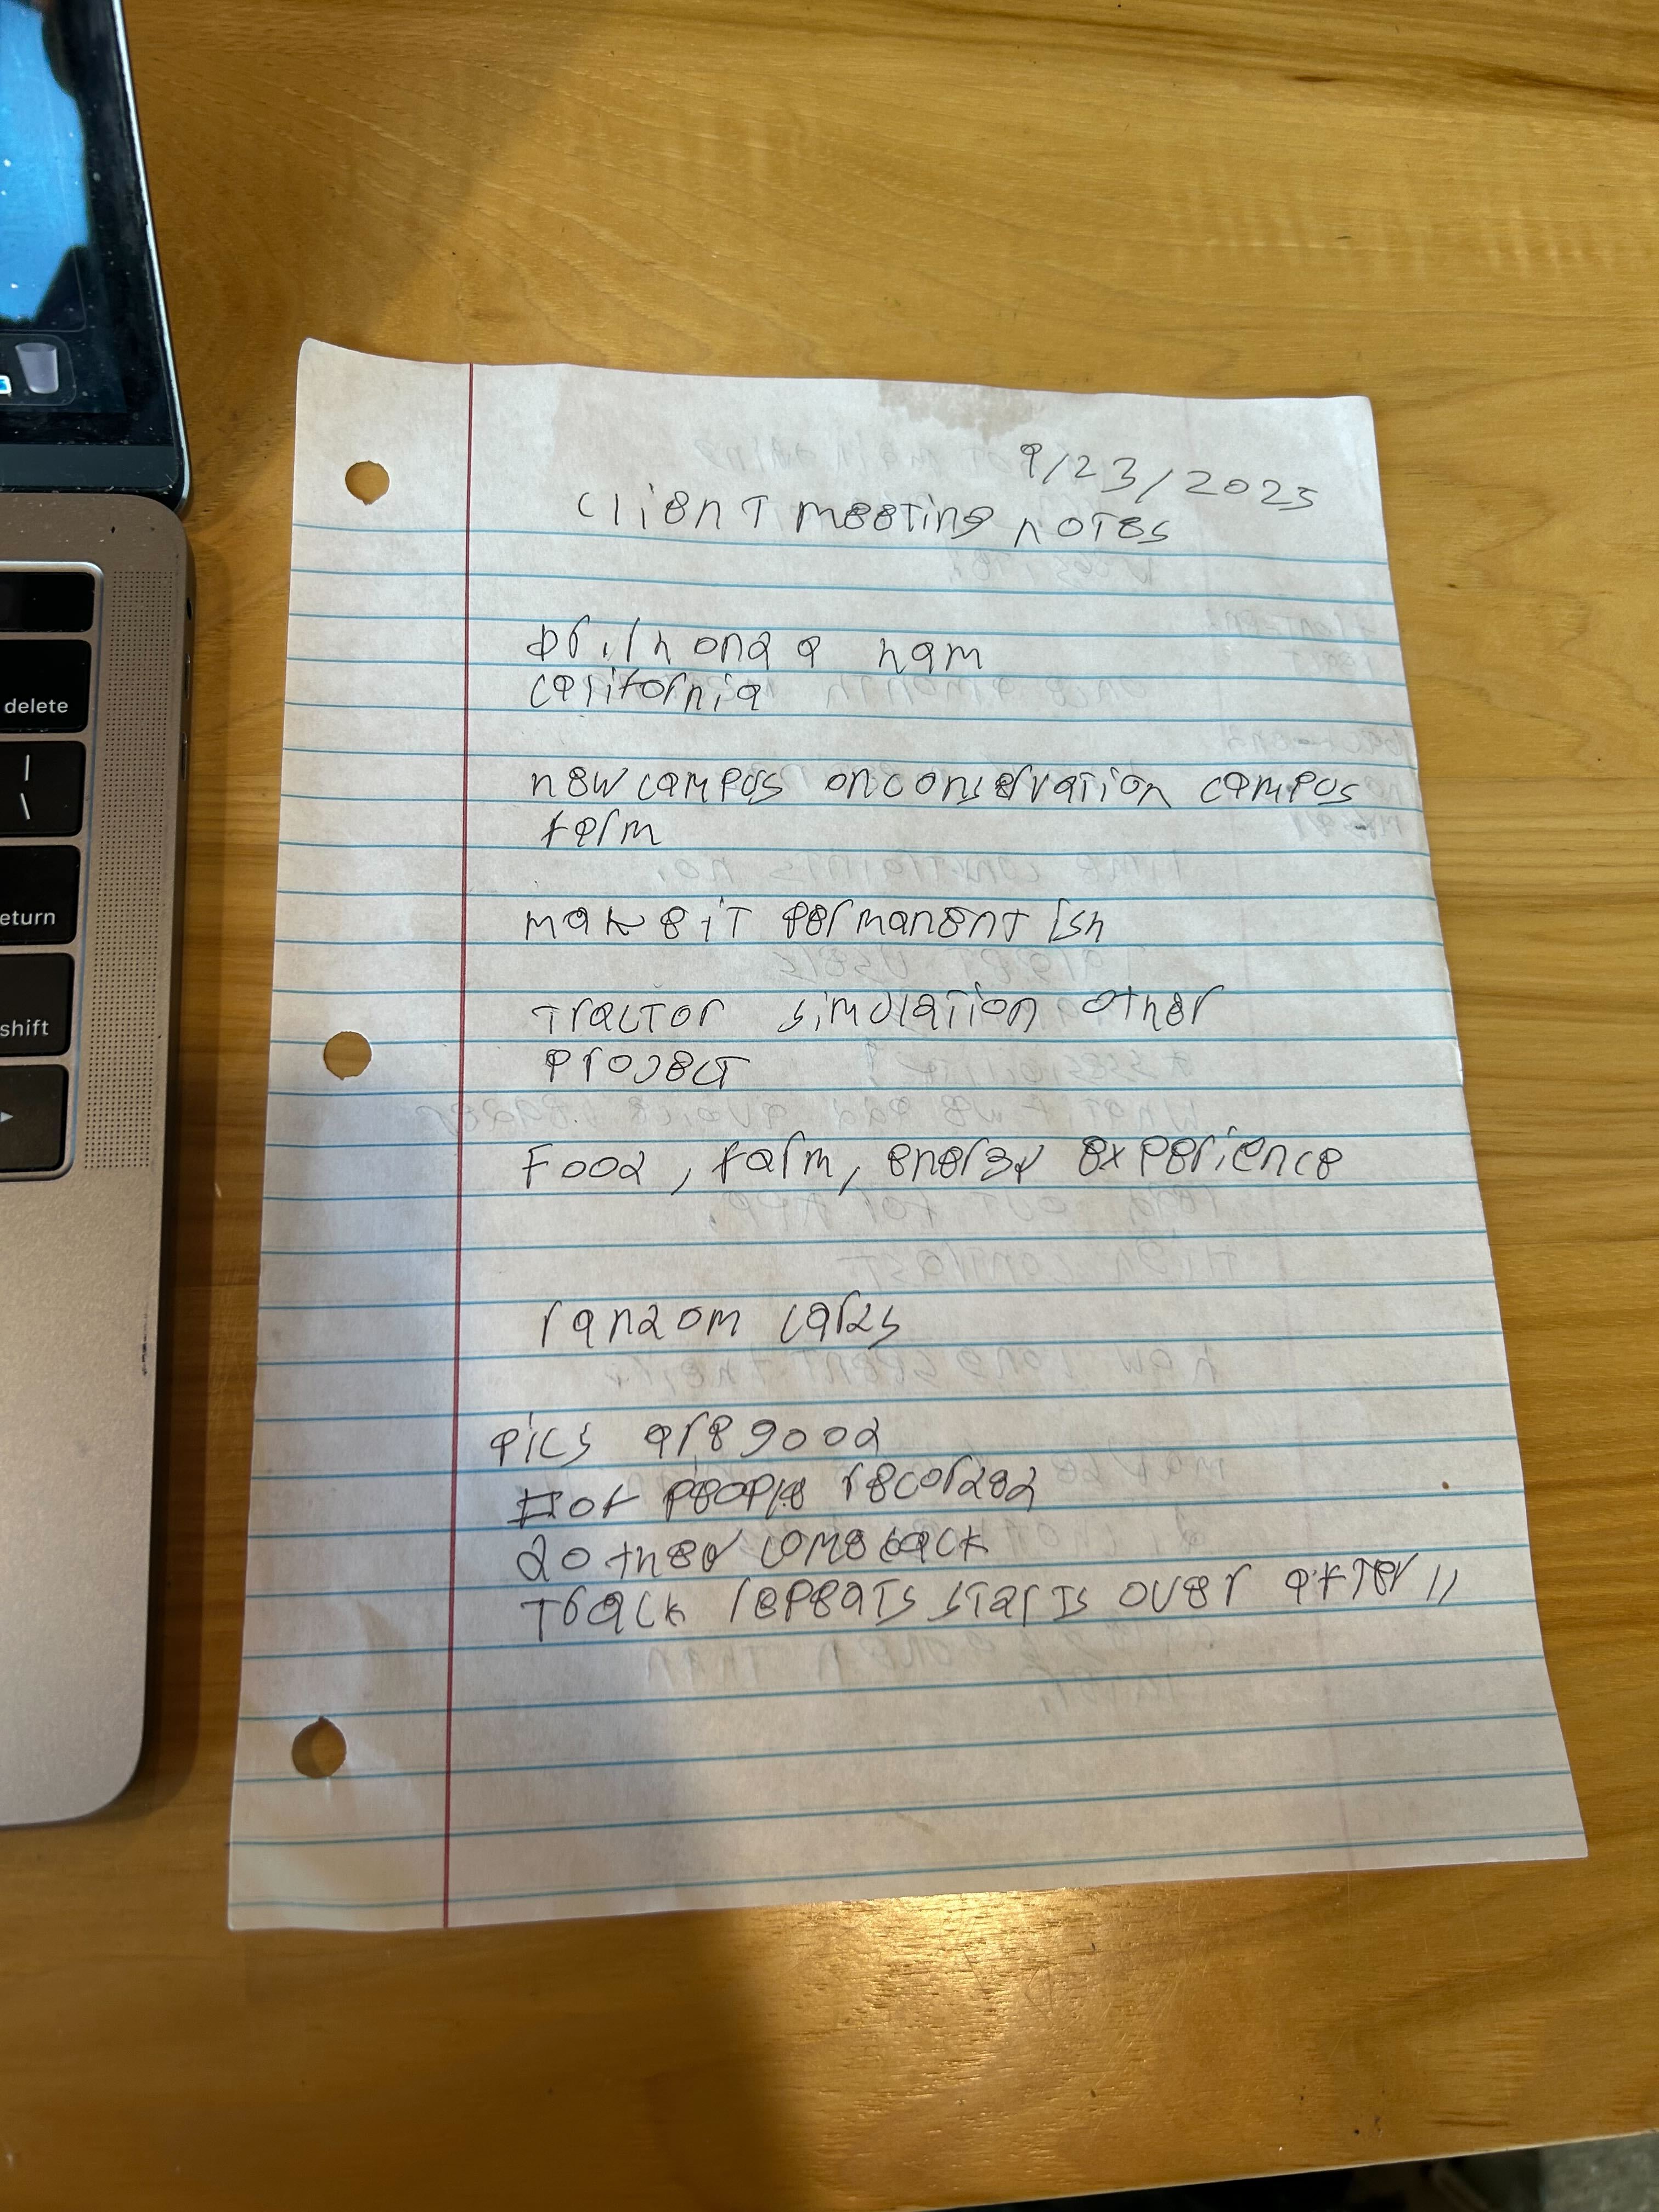 9/23/2025
client meeting notes
california
new campus on conservation campus
farm
make it permanent ish
Tractor simulation other
project
Food, farm, energy experience
random cards
pics are good
# of people recorded
do they come back
Track repeats starts over after 11
delete
|
\
eturn
shift